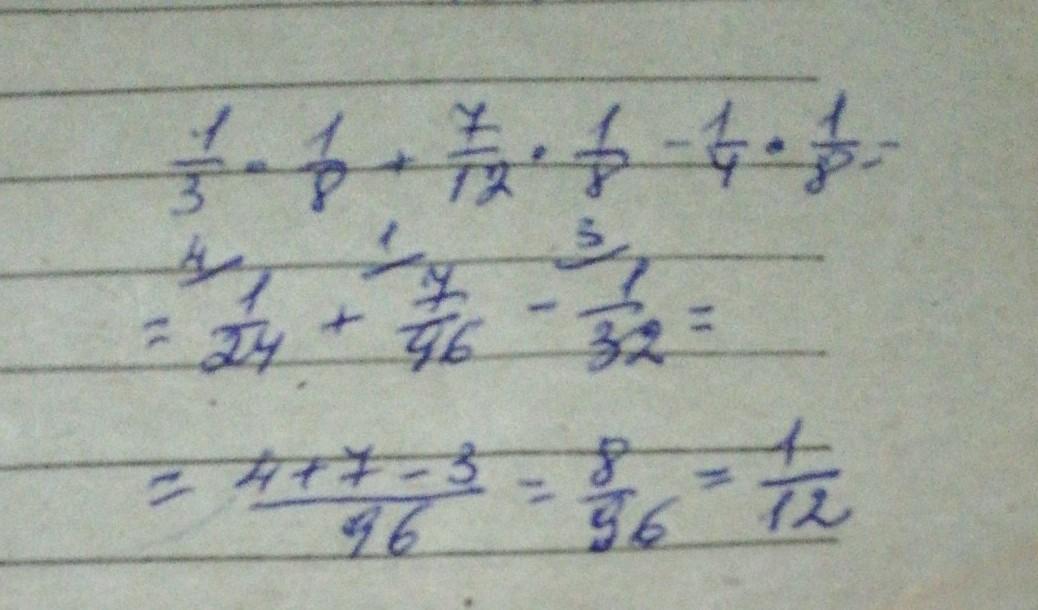 1/3 · 1/8 + 7/12 · 1/8 - 1/4 · 1/8 =
4 1 3
= 1/24 + 7/96 - 1/32 =
= 4+7-3/96 = 8/96 = 1/12